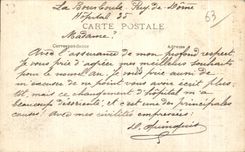 La Bourboule Puy de Dôme
Hôpital 35
63
CARTE POSTALE
Correspondance
Adresse
Madame,
Avec l'assurance de mon profond respect,
je vous prie d'agréer mes meilleurs souhaits
pour le nouvel an. Je vous prie aussi de
m'excuser de ne point vous avoir écrit plus
tôt, mais ce changement d'hôpital m'a
beaucoup désorienté; et c'est une des principales
causes! Avec mes civilités empressées!